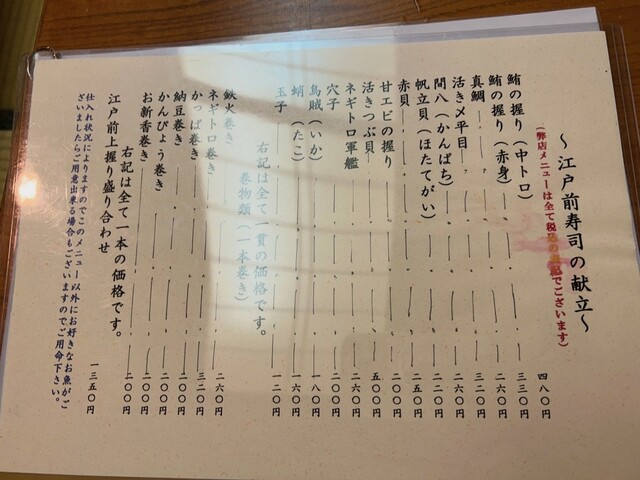 ～江戸前寿司の献立～
(弊店メニューは全て税込の表記でございます)
鮪の握り(中トロ) 四八〇円
鮪の握り(赤身) 三三〇円
真鯛 二六〇円
活き〆平目 三二〇円
間八(かんぱち) 二六〇円
帆立貝(ほたてがい) 二二〇円
赤貝 二六〇円
甘エビの握り 二〇〇円
活きつぶ貝 五〇〇円
ネギトロ軍艦 二六〇円
穴子 二〇〇円
烏賊(いか) 一八〇円
蛸(たこ) 一六〇円
玉子 一二〇円
右記は全て一貫の価格です。
巻物類(一本巻き)
鉄火巻き 二六〇円
ネギトロ巻き 三二〇円
かっぱ巻き 二〇〇円
納豆巻き 二〇〇円
かんぴょう巻き 二〇〇円
お新香巻き 二〇〇円
右記は全て一本の価格です。
江戸前上握り盛り合わせ 一三五〇円
仕入れ状況によりますのでこのメニュー以外にお好きなお魚がご
ざいましたらご用意出来る場合もございますのでご用命下さい。